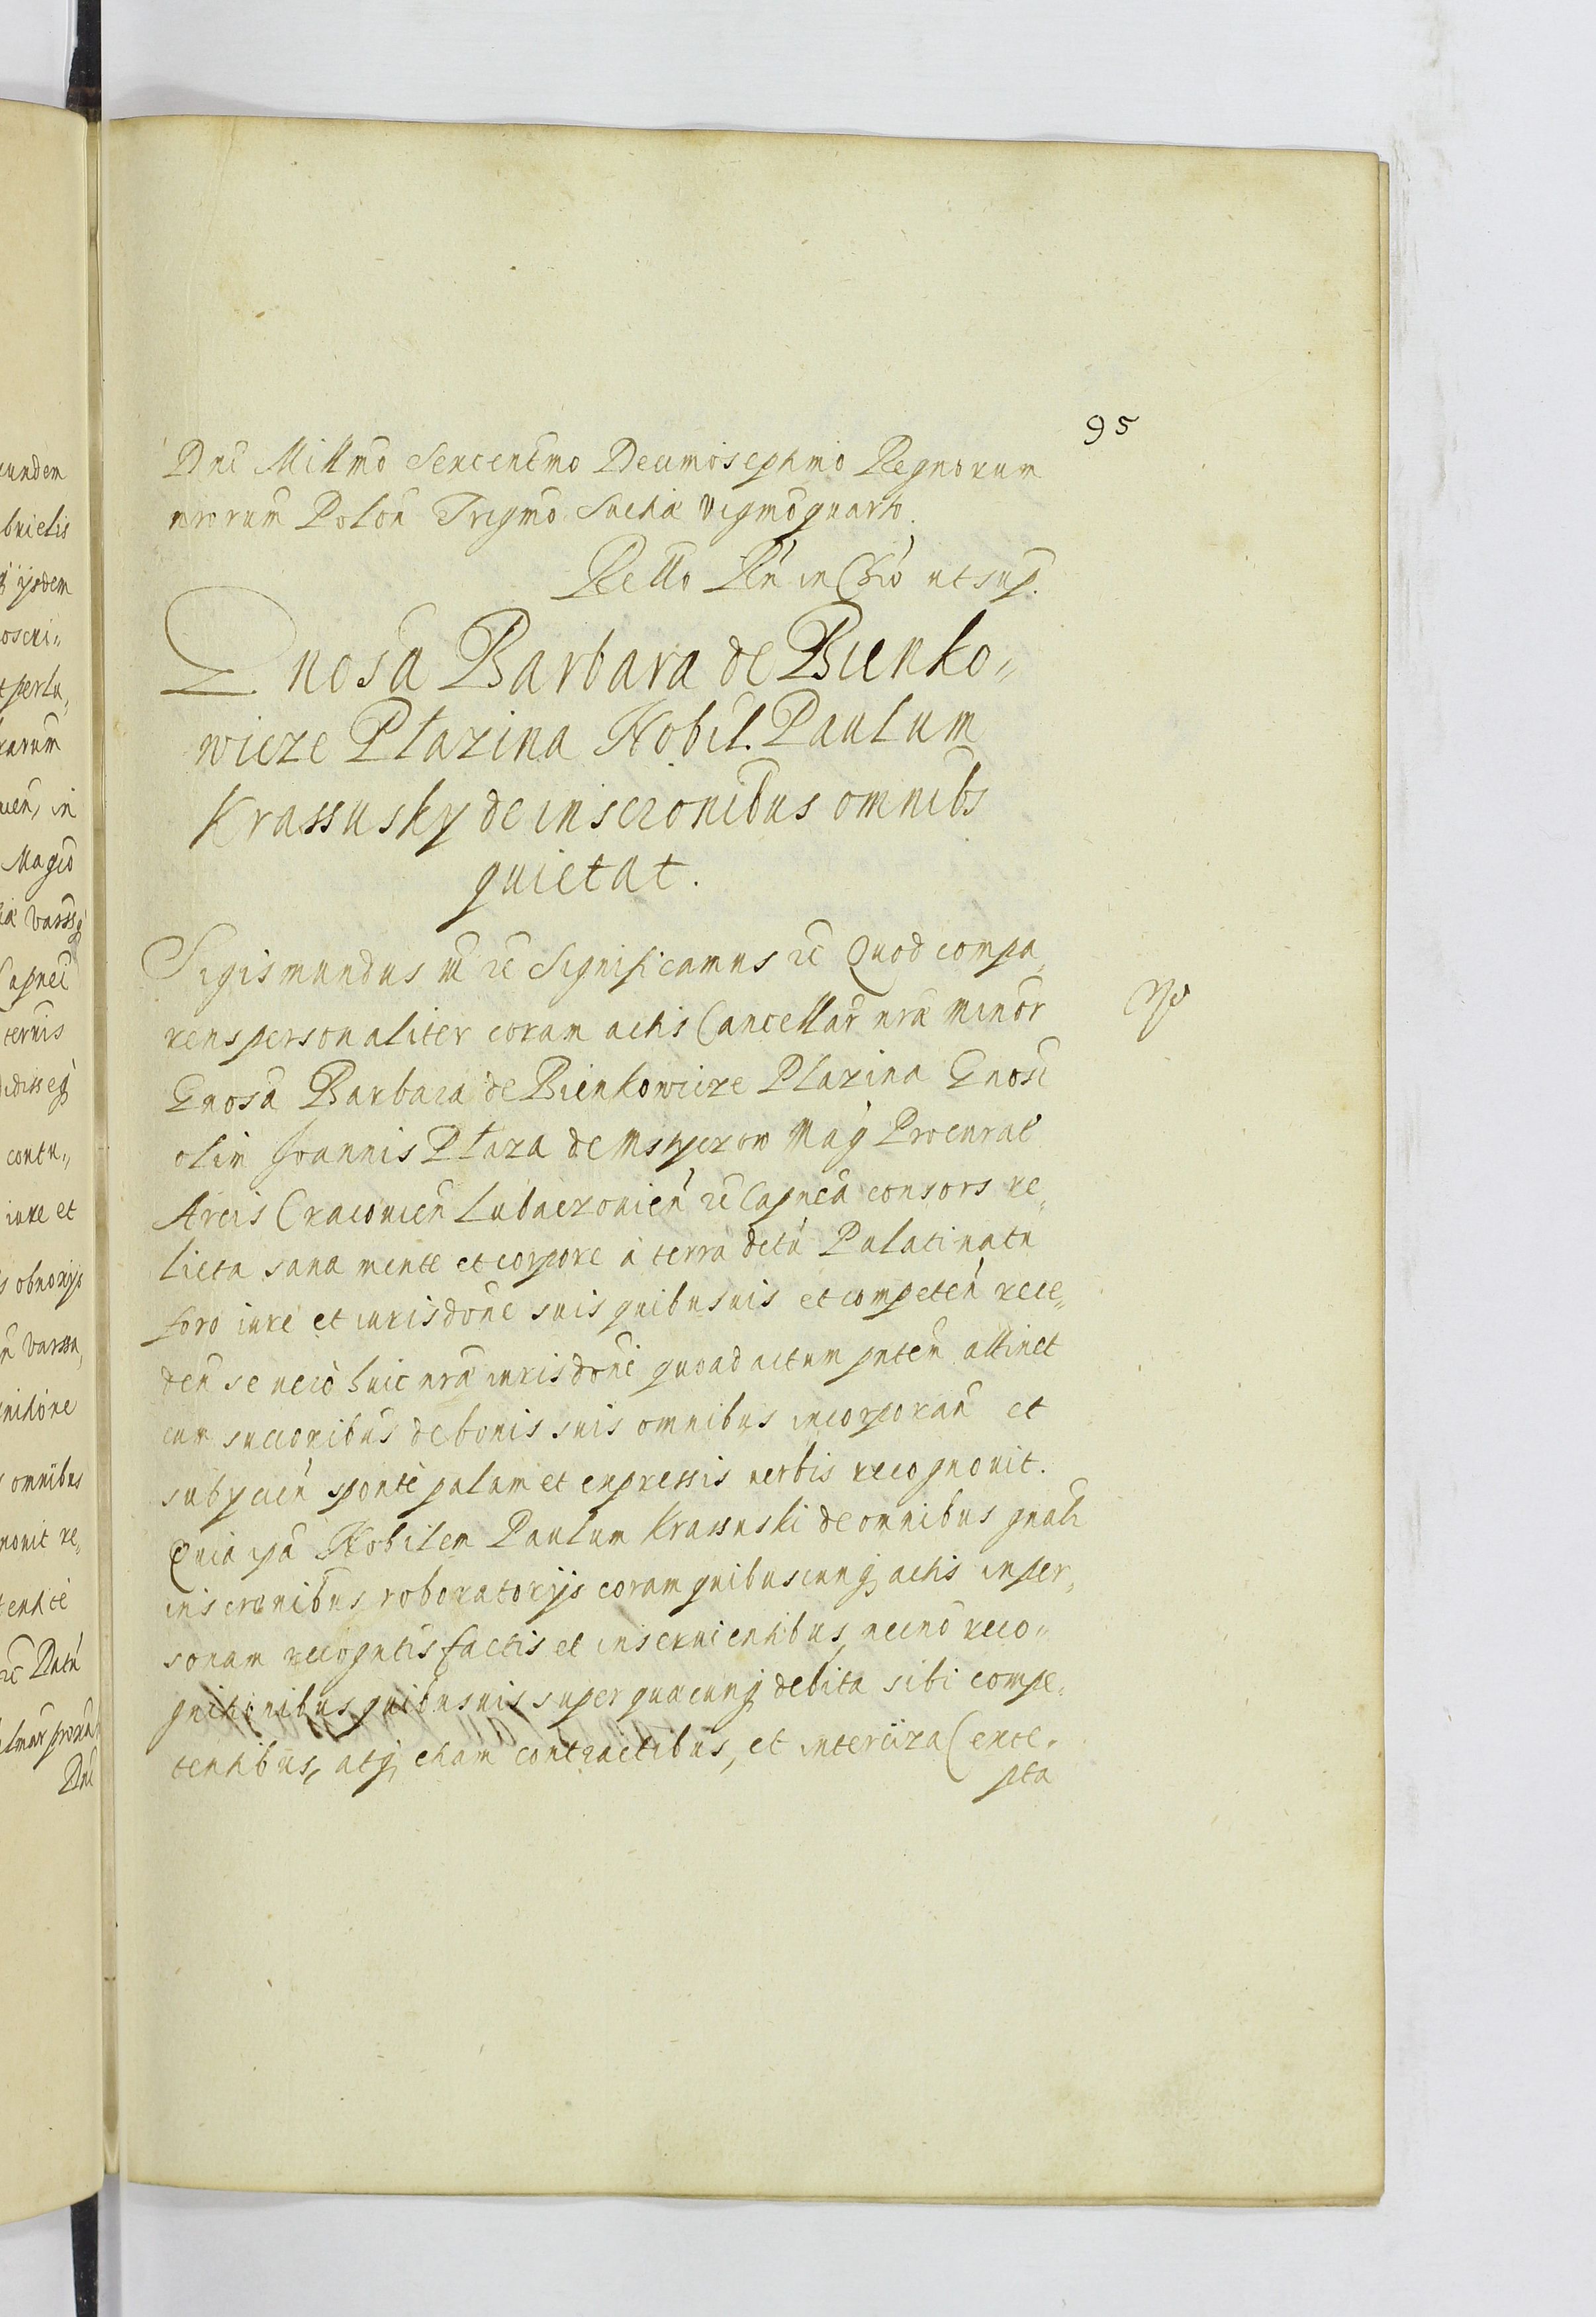 95
Dni Millmo Sexcentmo Decimoseptimo Regnorum
nrorum Polon Trigmo Suetiæ Vigmoquarto.
Rello Rn in Chio ut sup.
Gnosa Barbara de Bienko„
wicze Płazina Nobil. Paulum
Krassusky de inscrionibus omnibs
quietat.
Sigismundus III etc Significamus etc Quod compa„
rens personaliter coram actis Cancellar nræ minor
Gnosa Barbara de Bienkowicze Płazina Gnosi
olim Joannis Płaza de Mstyczow Mag Procurat
Arcis Cracovien Lubaczovien etc Capnea consors re„
licta sana mente et corpore à terra distu Palatinatu
foro iure et iurisdone suis quibusuis et competen rece„
den se vero huic nræ iurisdoni quoad actum pntem attinet
cum succoribus de bonis suis omnibus incorporan et
subycien sponte palam et expressis verbis recognovit.
Quia ipa Nobilem Paulum Krassuski de omnibus gnali
inscronibus roboratorijs coram quibuscunq actis in per„
sonam recogntis factis et inseruientibus, necno reco„
gnitionibus quibusuis super quæcunq debita sibi compe„
tentibus, atq etiam contractibus, et intercizia (exce„
pta
cundem
brielis
ijsdem
oscri„
perlu„
rarum
in
Magco
Varss
Capnei
ternis
contu„
iure et
obnoxijs
Varssa„
omnibus
novit re„
Datu
Dni